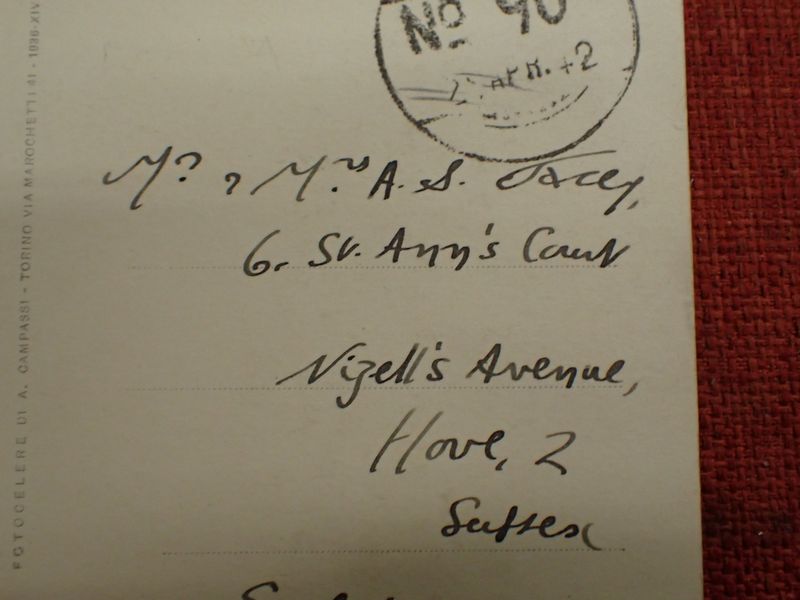 No 90
APR. 42
Mr & Mrs A. S. Tacey,
6. St. Ann's Court
Nizell's Avenue,
Hove, 2
Sussex
FOTOCELERE DI A. CAMPASSI - TORINO VIA MAROCHETTI 41 - 1936-XIV